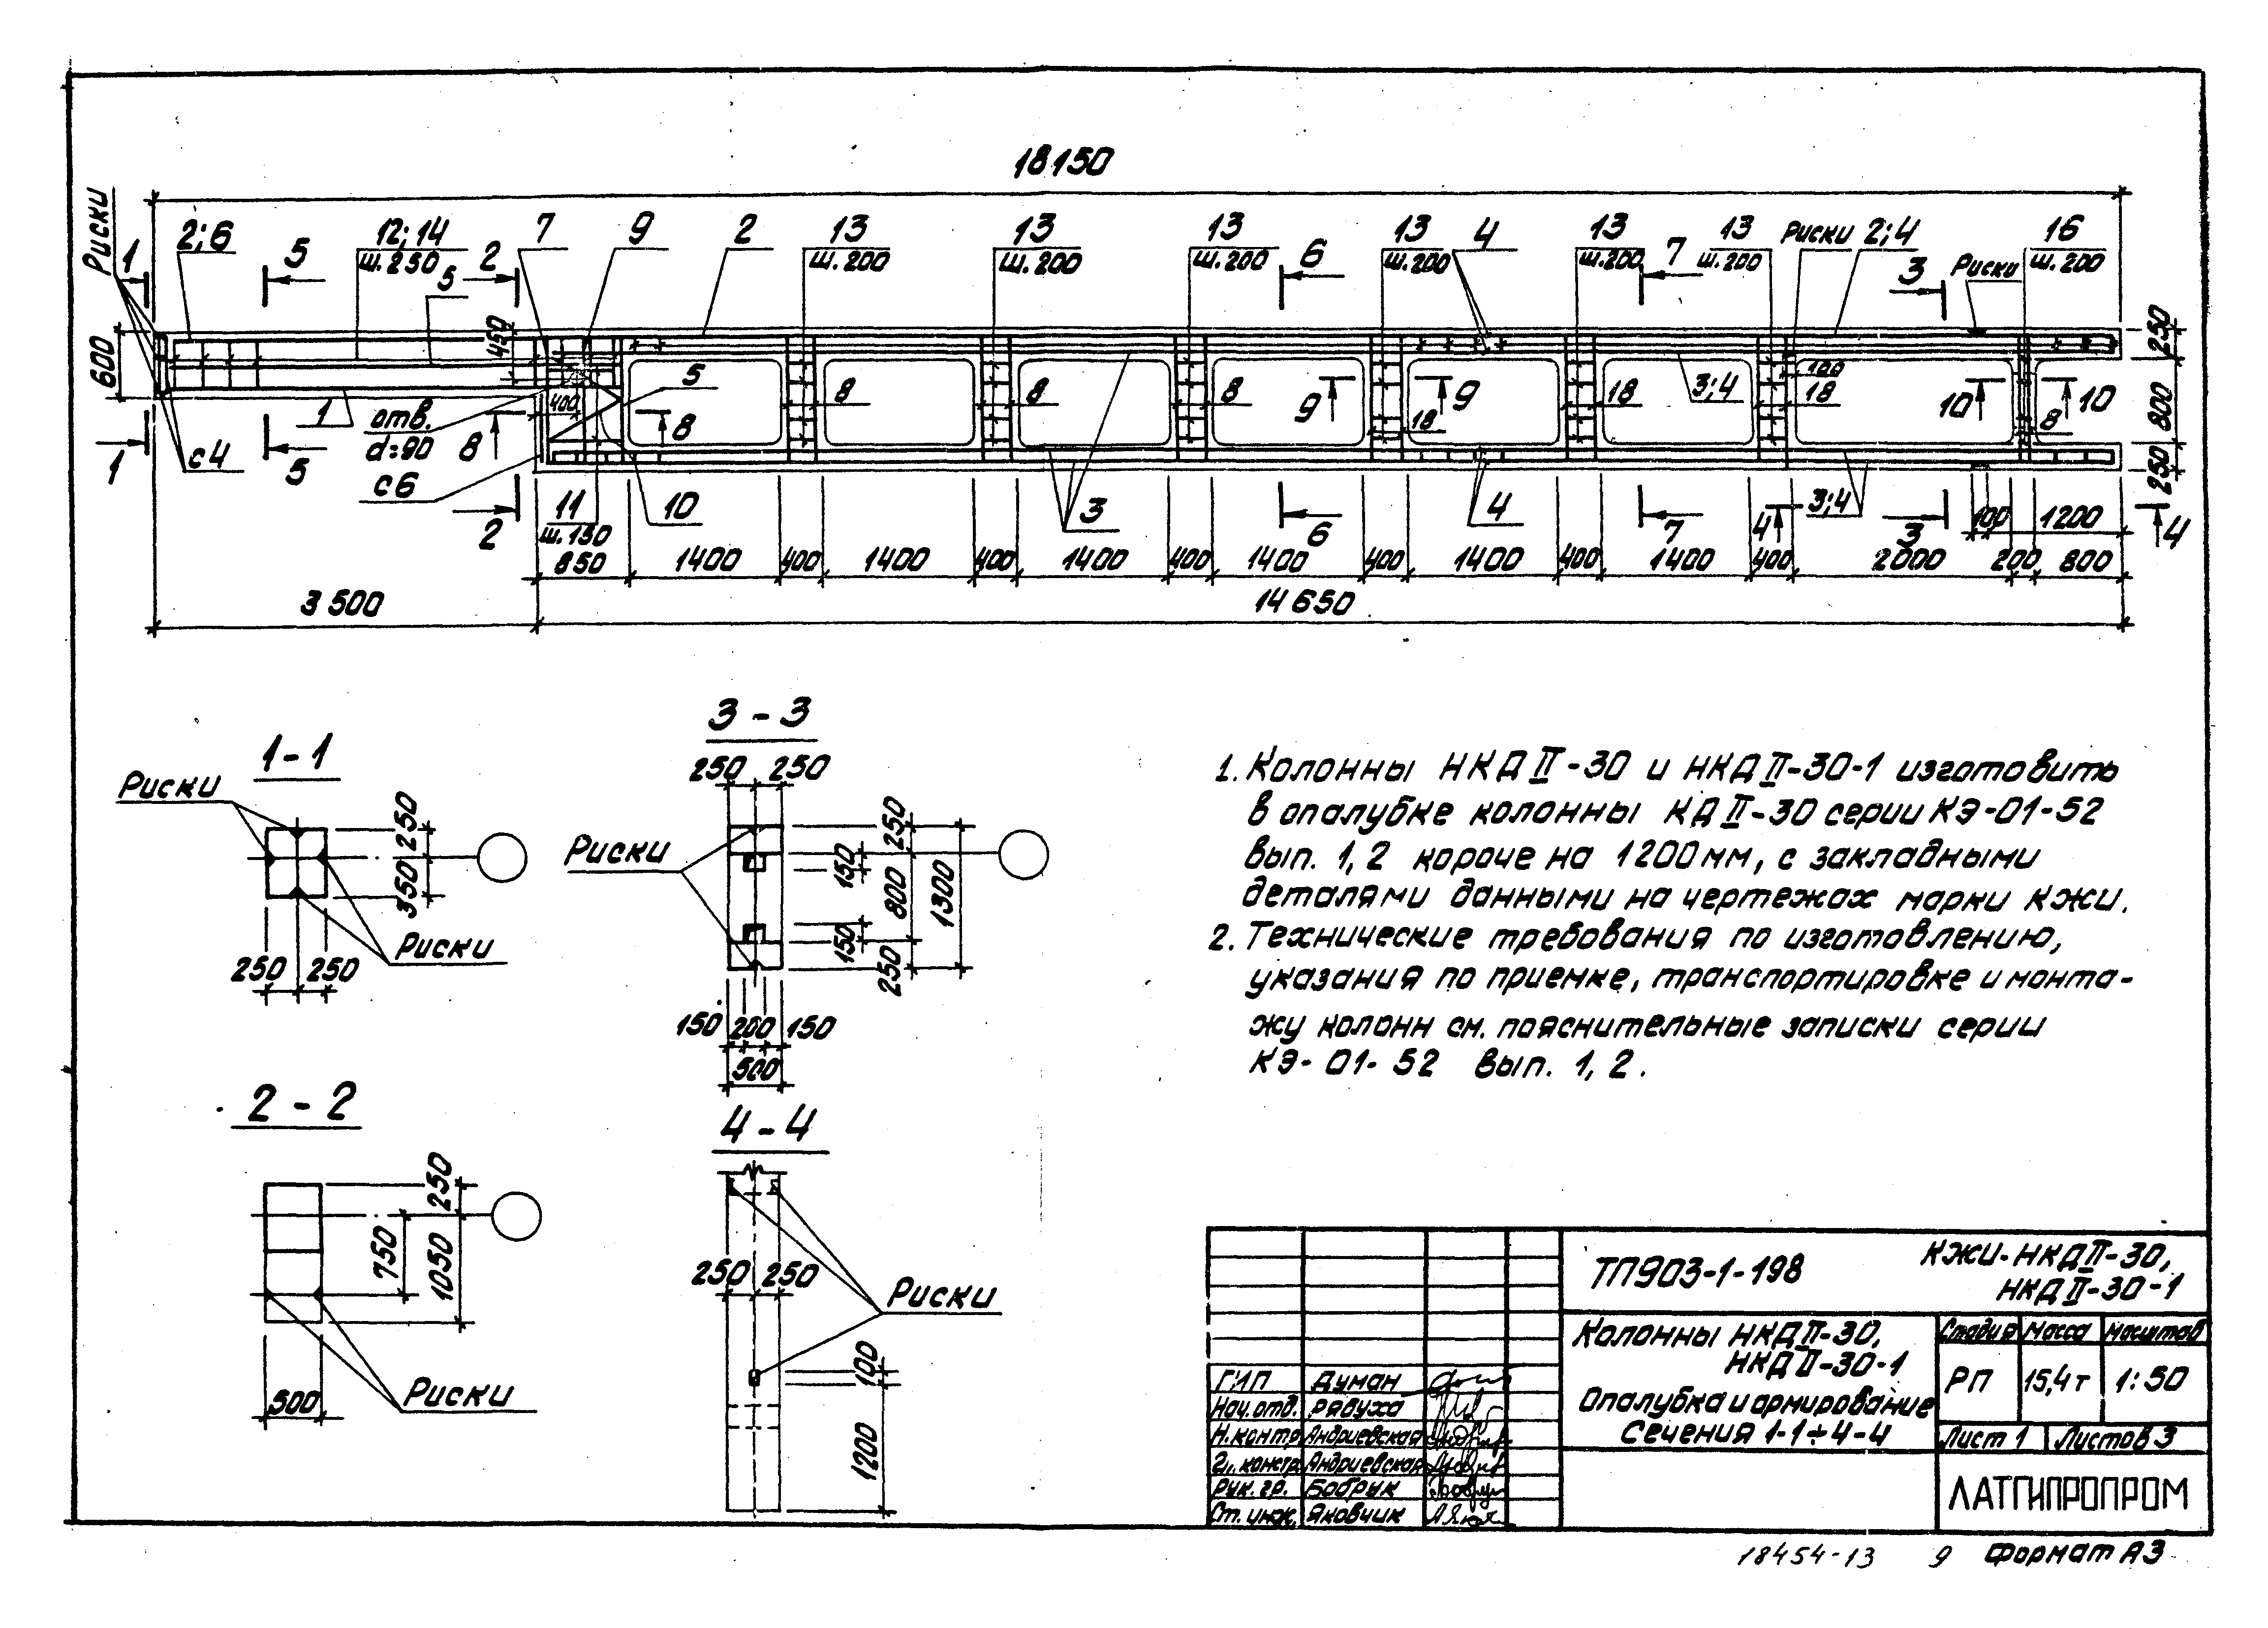 18150
Риски
1
2;6
5
12; 14
ш. 250
5
2
7
9
2
13
ш. 200
13
ш. 200
13
ш. 200
6
13
ш. 200
4
13
ш. 200
7
13
ш. 200
Риски 2;4
3
Риски
16
ш. 200
600
450
250
5
8
8
8
9
9
3;4
100
18
18
10
10
800
8
1
отв.
d=90
400
8
8
18
1
с4
5
с6
250
2
11
ш. 150
10
3
4
6
7
4
3;4
3
100
1200
4
850
1400
400
1400
400
1400
400
1400
400
1400
400
1400
400
2000
200
800
3 500
14 650
1-1
Риски
250
350
Риски
250 250
3-3
250 250
Риски
250
150
800
1300
150
250
150 200 150
500
2-2
250
750
1050
Риски
500
4-4
250 250
Риски
100
1200
1. Колонны НКДII-30 и НКДII-30-1 изготовить
в опалубке колонны КДII-30 серии КЭ-01-52
вып. 1, 2 короче на 1200мм, с закладными
деталями данными на чертежах марки КЖИ.
2. Технические требования по изготовлению,
указания по приемке, транспортировке и монта-
жу колонн см. пояснительные записки серии
КЭ-01-52 вып. 1, 2.
ТП903-1-198
КЖИ-НКДII-30,
НКДII-30-1
Колонны НКДII-30,
НКДII-30-1
Опалубка и армирование
Сечения 1-1÷4-4
Стадия Масса Масштаб
РП 15,4т 1:50
Лист 1 Листов 3
ЛАТГИПРОПРОМ
ГИП Думан
Нач.отд. Рябуха
Н.контр Андриевская
Гл. констр. Андриевская
Рук. гр. Бобрук
Ст. инж. Яковчик
18454-13 9 Формат А3